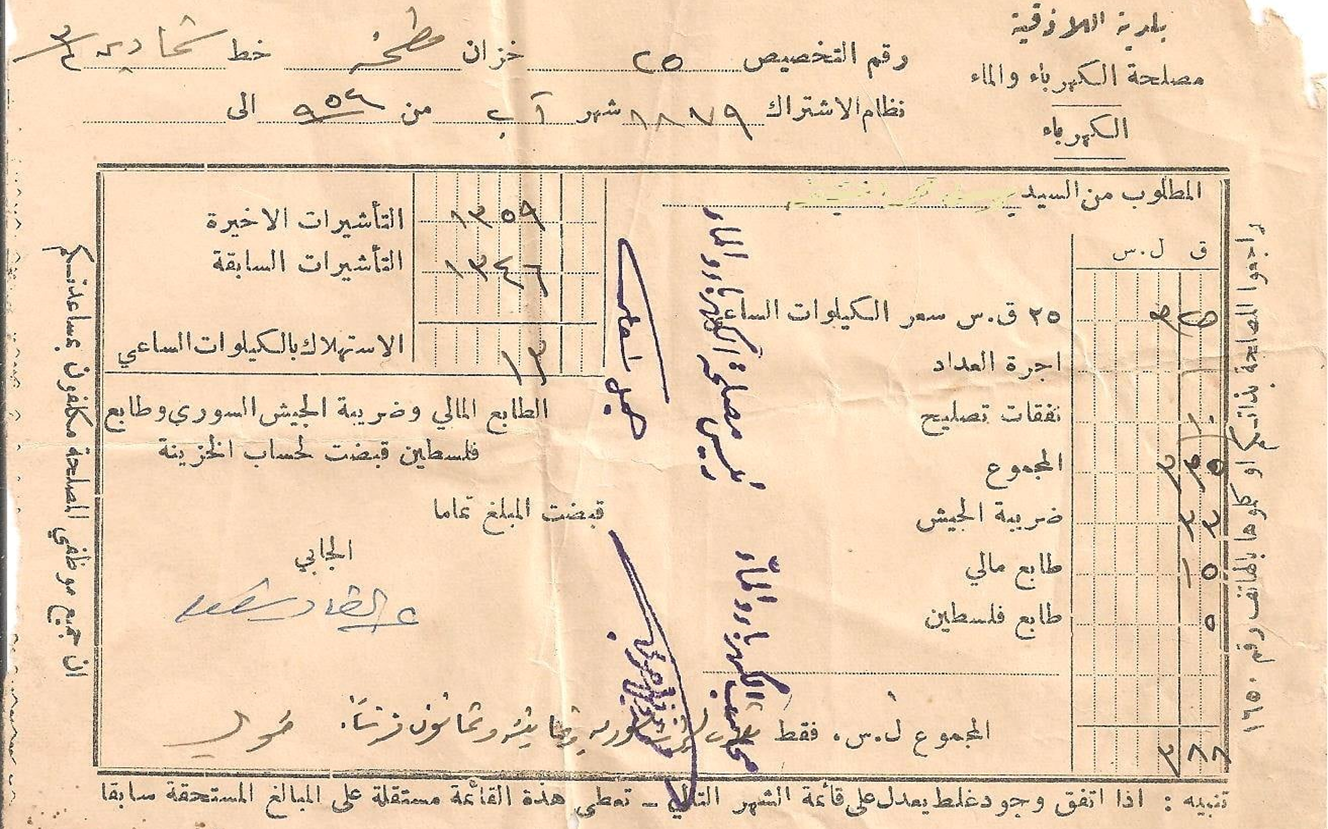 بلدية اللاذقية
مصلحة الكهرباء والماء
الكهرباء
رقم التخصيص ٢٥ خزان خط
نظام الاشتراك ٨٨٧٩ شهر آب من ٩٥٤ الى
المطلوب من السيد
ق ل.س
٢٥ ق.س سعر الكيلوات الساعي ٣ ٢٥
اجرة العداد
نفقات تصليح ١٠
المجموع ٣ ٣٥
ضريبة الجيش ٣٣
طابع مالي ١٥
طابع فلسطين ٥
المجموع ل.س. فقط سورية وثمانية وثمانون قرشاً.
٣ ٨٨
التأشيرات الاخيرة ١٣٥٩
التأشيرات السابقة ١٣٤٦
الاستهلاك بالكيلوات الساعي ١٣
الطابع المالي وضريبة الجيش السوري وطابع
فلسطين قبضت لحساب الخزينة
قبضت المبلغ تماما
الجابي
رئيس مصلحة الكهرباء والماء
محاسب الكهرباء والماء
راجعوا المصلحة بذاتكم او كلموها بالهاتف رقم ١٦٥٠
ان جميع موظفي المصلحة مكلفون بمساعدتكم
تنبيه : اذا اتفق وجود غلط يعدل على قائمة الشهر التالي - تعطى هذة القائمة مستقلة على المبالغ المستحقة سابقا